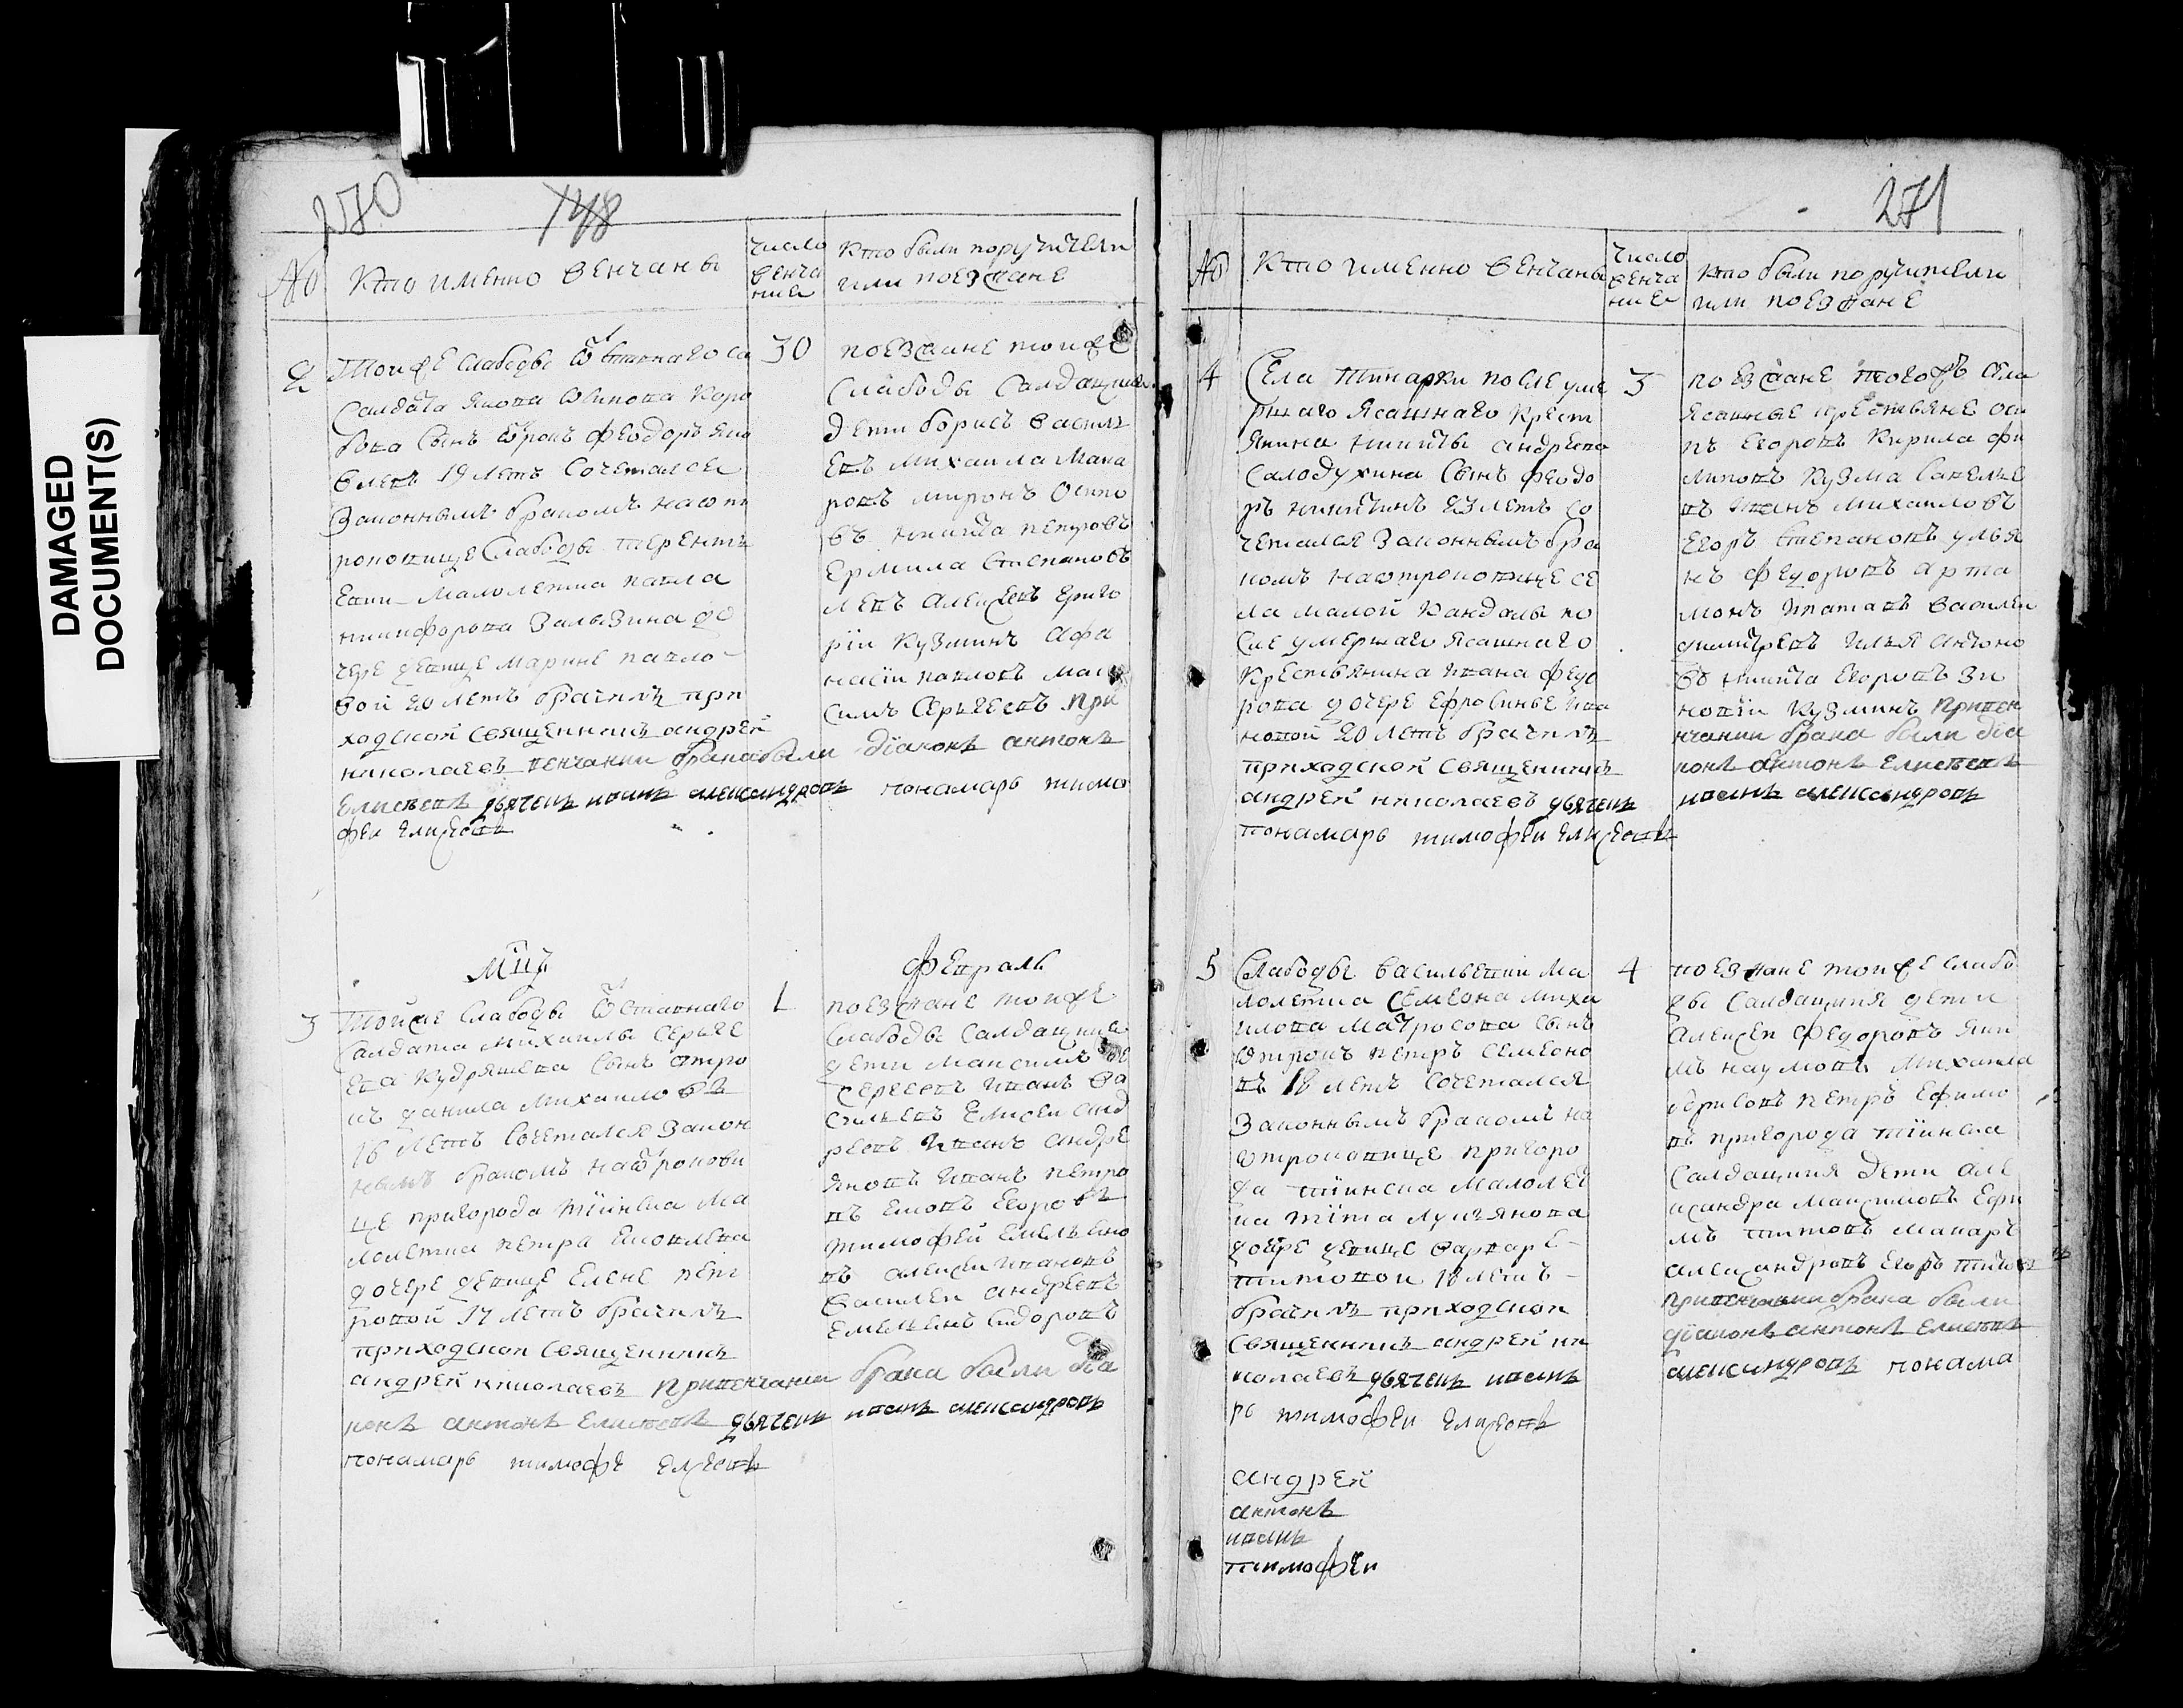 DAMAGED
DOCUMENT(S)
270
148
№
Кто именно венчаны
число
венча
ние
Кто были поручители
или поезжане
2
Тойже слабоды ѿставнаго са
салдата Якова
бова сынъ ѿрокъ Феодоръ Яко
влевъ 19 летъ сочетался
законнымъ бракомъ на от
роковице слабоды Терентъ
евки малолетка Павла
Никифорова Залызина до
чере девице Марине Павло
вой 20 летъ брачилъ при
ходской священникъ андрей
николаевъ венчании брака были
Елисеевъ дьячекъ иванъ александровъ
феи елисеевъ
30
поезжане тойже
слабоды салдацкие
дети борисъ василь
евъ Михаила Мака
ровъ миронъ Осипо
въ Никита петровъ
Ермила Степановъ
левъ алексеевъ григо
рїи Кузминъ Афа
насїи павловъ мак
симъ Сергеевъ При
дїаконъ антонъ
понамарь тимо
Мцъ
Февраль
3
Тойже слабоды ѿставнаго
салдата Михаилы Серьге
ева Кудряшева сынъ отро
къ данила Михаиловъ
16 летъ сочетался закон
нымъ бракомъ на ѿрокови
це пригорода Тїинска ма
молетка петра Яковлева
дочере девице Елене пет
ровой 17 летъ брачилъ
приходской священникъ
андрей николаевъ При венчании брака были дїа
конъ антонъ Елисеевъ дьячекъ иванъ александровъ
понамарь тимофе елисеевъ
1
поезжане тойже
слабоды салдацкие
дети Максимъ
Сергеевъ Иванъ Ва
сильевъ Елисеи анд
реевъ Иванъ андре
яновъ Иванъ петро
въ Егоровъ
Тимофей Емельяно
въ алексеи Ивановъ
Василеи андреевъ
Емельянъ Сидоровъ
271
№
Кто именно венчаны
число
венча
ние
кто были поручители
или поезжане
4
Села Тинарки после уме
ршаго ясашнаго крест
янина Никиты андреева
Салодухина сынъ феодо
ръ никитинъ 23 летъ со
четался законнымъ бра
комъ на отроковице се
ла малой Кандалы по
сле умершаго ясашнаго
крестьянина Ивана федо
рова дочере Ефросинье Ива
новой 20 летъ брачилъ
приходской священникъ
андрей николаевъ дьячекъ
понамарь тимофеи елисеевъ
3
поезжане тогожъ села
ясашные крестьяне оси
пъ Егоровъ Кирила фи
липовъ Кузма Савелье
въ Иванъ Михаиловъ
Егоръ Степановъ улья
нъ Федоровъ арта
монъ Игнатовъ Василеи
дмитревъ Илья антоно
въ Никита Егоровъ Зи
новїи Кузминъ При вен
чании брака были дїа
конъ антонъ Елисеевъ
иванъ александровъ
5
Слабоды Васильевки ма
лолетка Семеона Миха
илова Матросова сынъ
отрокъ петръ Семеоно
въ 18 летъ сочетался
законнымъ бракомъ на
отроковице пригоро
да тїинска малолет
ка Тита Лукьянова
дочере девице варваре
Титовои 18 летъ
брачилъ приходской
священникъ андрей ни
колаевъ дьячекъ иванъ
рь тимофеи елисеевъ
андрей
антонъ
иванъ
тимофеи
4
поезжане тойже слабо
ды салдацкия дети
Алексеи Федоровъ Яки
мъ наумовъ Михаила
борисовъ петръ Ефимо
въ пригорода тїинска
Салдацкия дети але
ксандра Максимовъ Ефи
мъ титовъ макаръ
александровъ Егоръ
при венчании брака были
дїаконъ антонъ Елисеевъ
александровъ понама